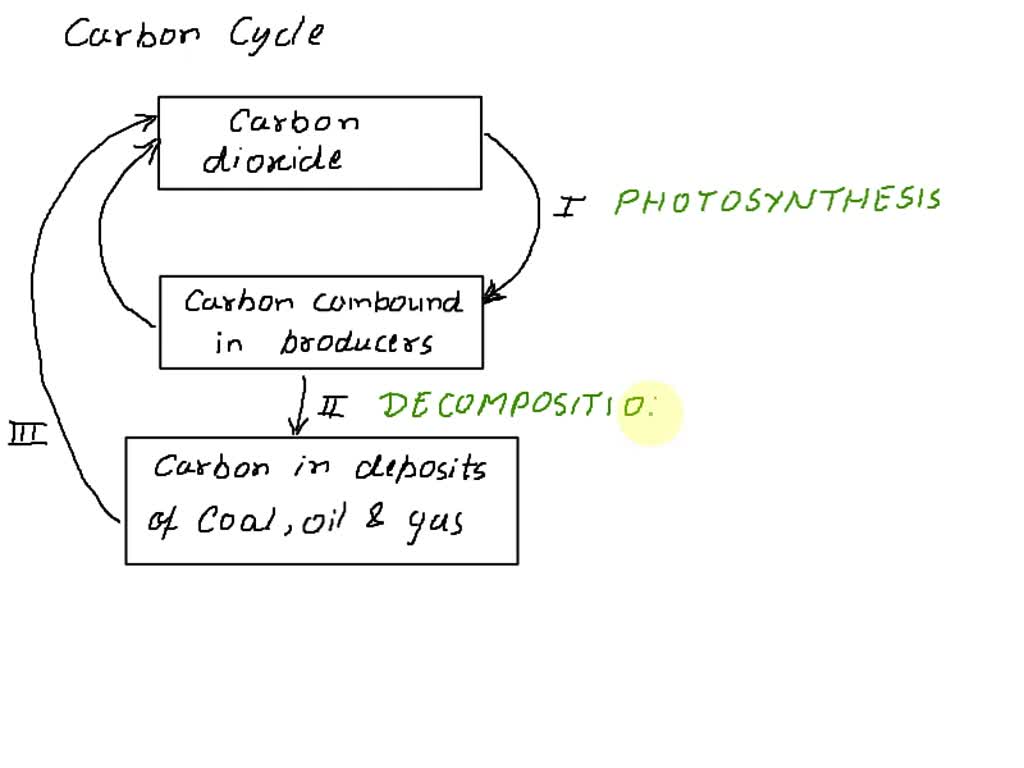 Carbon Cycle
Carbon
dioxide
I PHOTOSYNTHESIS
Carbon combound
in broducers
II DECOMPOSITIO
III
Carbon in deposits
of Coal, oil & gas